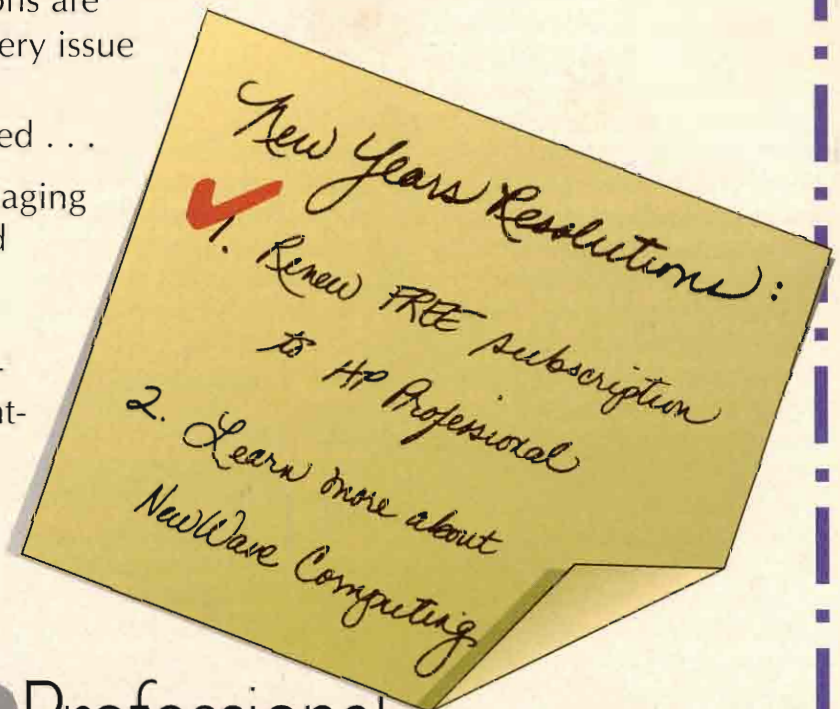 ons are
ery issue
ed . . .
aging
d
-
nt-
New Years Resolutions:
1. Renew FREE subscription
to HP Professional
2. Learn more about
NewWave Computing
Professional